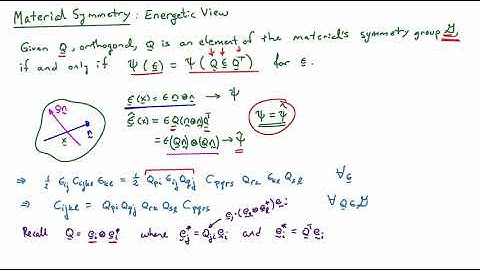 Material Symmetry : Energetic View
Given Q, orthogonal, Q is an element of the material's symmetry group G
if and only if ψ(ε) = ψ(Q ε Qᵀ) for ε.
ε(x) = ε n⊗n → ψ
ε̂(x) = ε Q(n⊗n)Qᵀ
= ε(Qn)⊗(Qn) → ψ̂
ψ = ψ̂
Qn
n
x
⇒ ½ εij Cijkl εkl = ½ Qpi εij Qqj Cpqrs Qrk εkl Qsl ∀ε
⇒ Cijkl = Qpi Qqj Qrk Qsl Cpqrs ∀ Q∈G
Recall Q = ei⊗ei* where ej* = Qji ei and ei* = Qᵀei
ej·(ek⊗ek*)ei